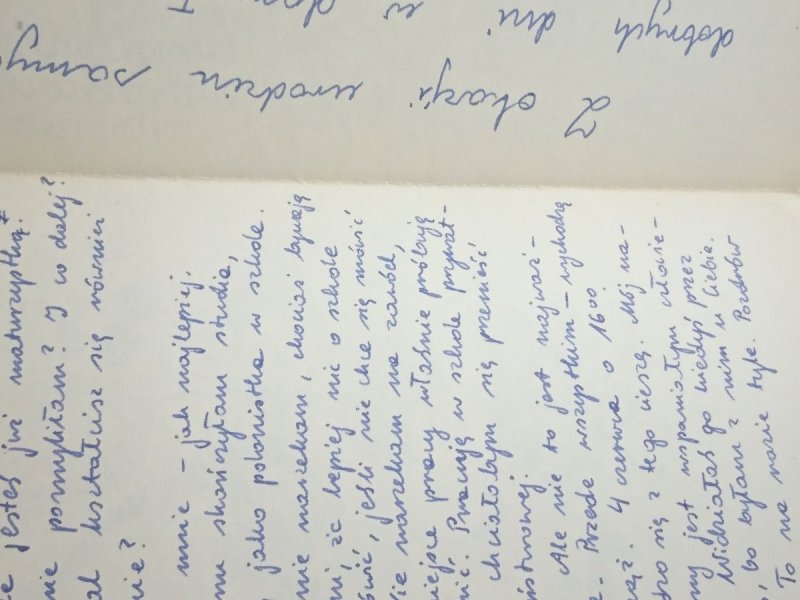 Z okazji urodzin samy
dobrych dni w
jesteś już maturzystką?
pomyliłam? I co dalej?
kształcisz się również
nie?
mnie – jak najlepiej.
mu skończyłam studia,
jako polonistka w szkole.
nie narzekam, chociaż bywają
ni, że lepiej nic o szkole
ówić, jeśli nie chce się mówić
ie narzekam na zawód,
iejsce pracy właśnie próbuję
nić. Pracuję w szkole prywat-
chciałabym się przenieść
ństwowej.
Ale nie to jest najważ-
Przede wszystkim – wychodzę
ąż. 4 czerwca o 16.00.
zo się z tego cieszę. Mój na-
ny jest wspaniałym człowie-
Widziałaś go kiedyś przez
bo byłam z nim u Ciebie.
To na razie tyle. Pozdrów